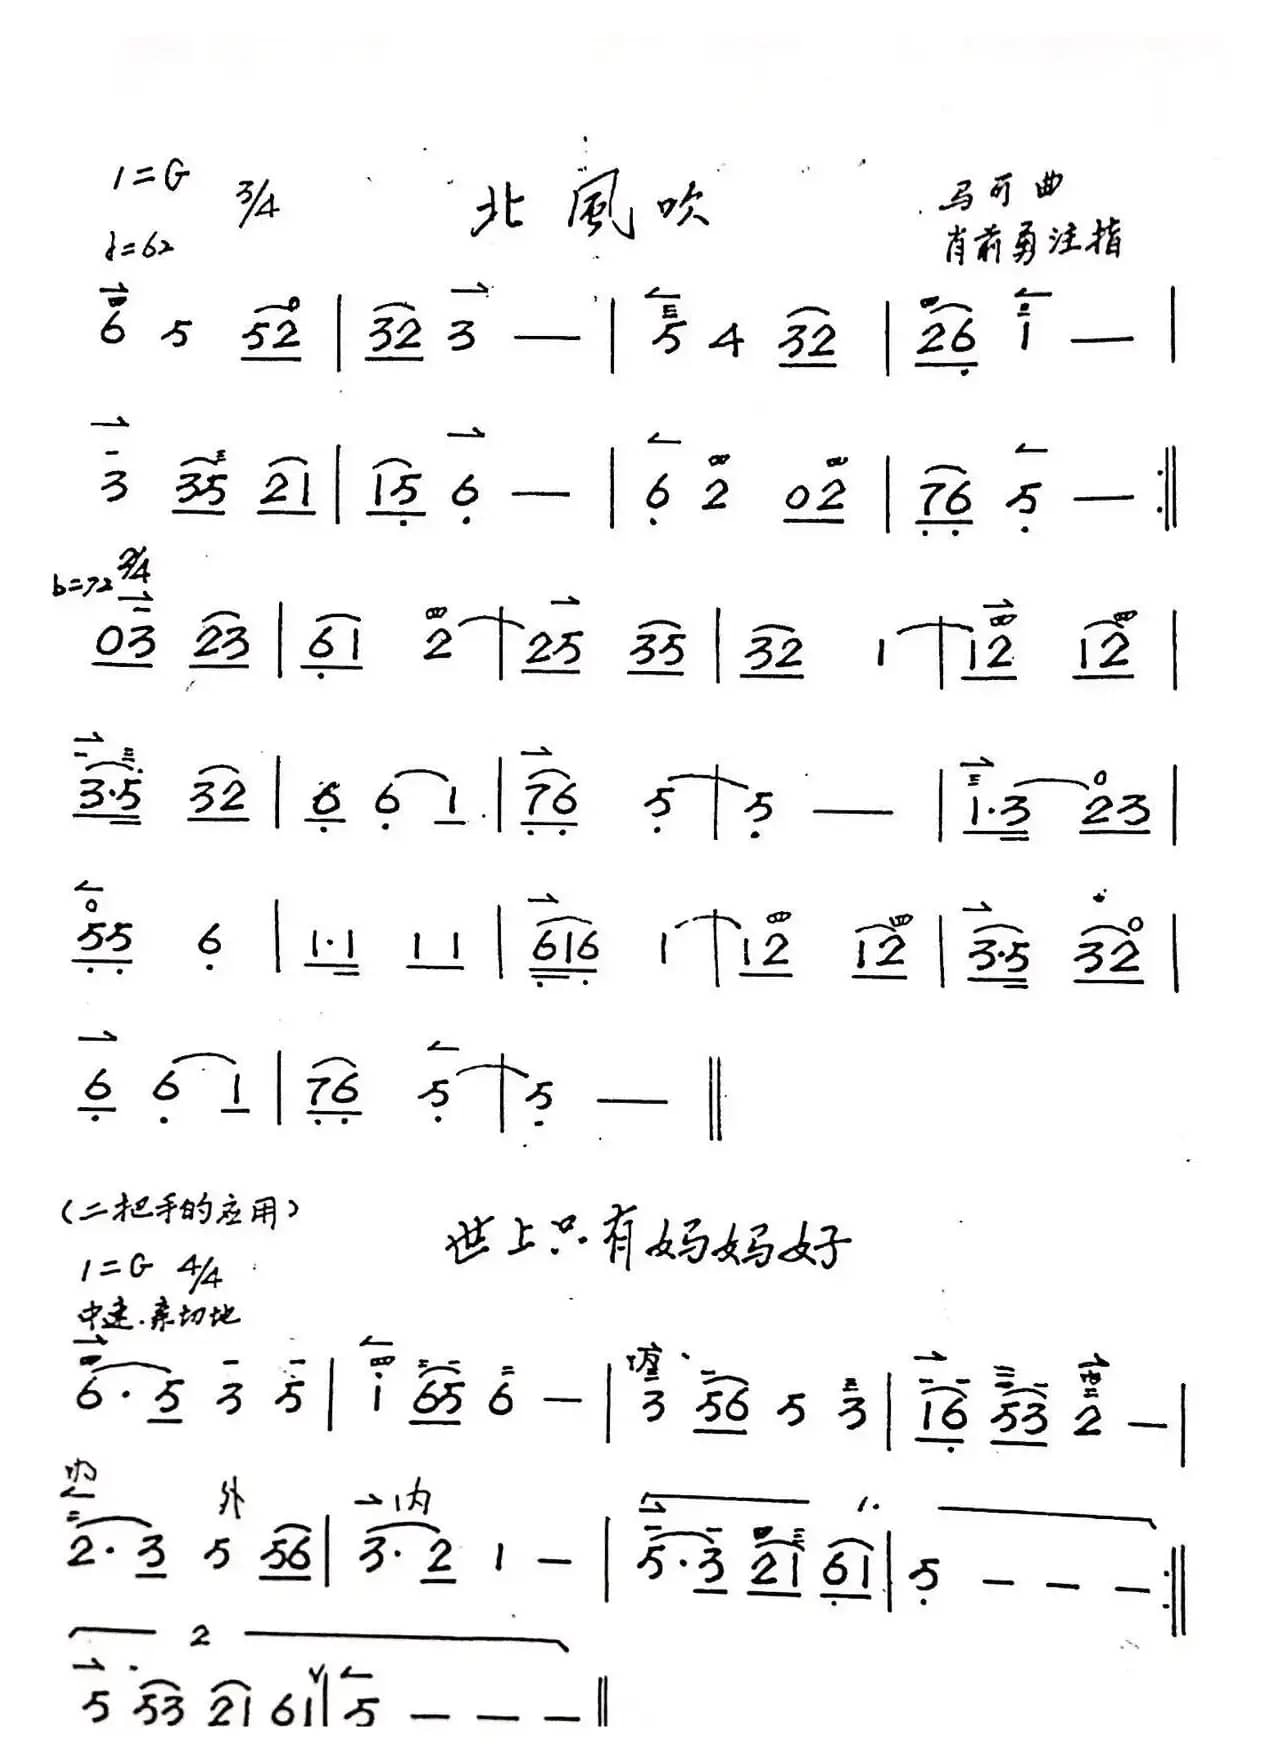 1=G 3/4 北風吹 马可曲
♩=62 肖前勇注指
6 5 52 | 32 3 — | 5 4 32 | 26 1 — |
3 35 21 | 15 6 — | 6 2 02 | 76 5 — :||
♩=72 2/4
03 23 | 61 2 | 25 35 | 32 1 | 12 12 |
3·5 32 | 6 6 1 | 76 5 | 5 — | 1·3 23 |
55 6 | 1·1 11 | 616 1 | 12 12 | 3·5 32 |
6 6 1 | 76 5 | 5 — ||
(二把手的应用) 世上只有妈妈好
1=G 4/4
中速.亲切地
内
6·5 3 5 | 1 65 6 — | 3 56 5 3 | 16 53 2 — |
内 外 内 1.
2·3 5 56 | 3·2 1 — | 5·3 21 61 | 5 — — — :||
2
5 53 21 61 | 5 — — — ||